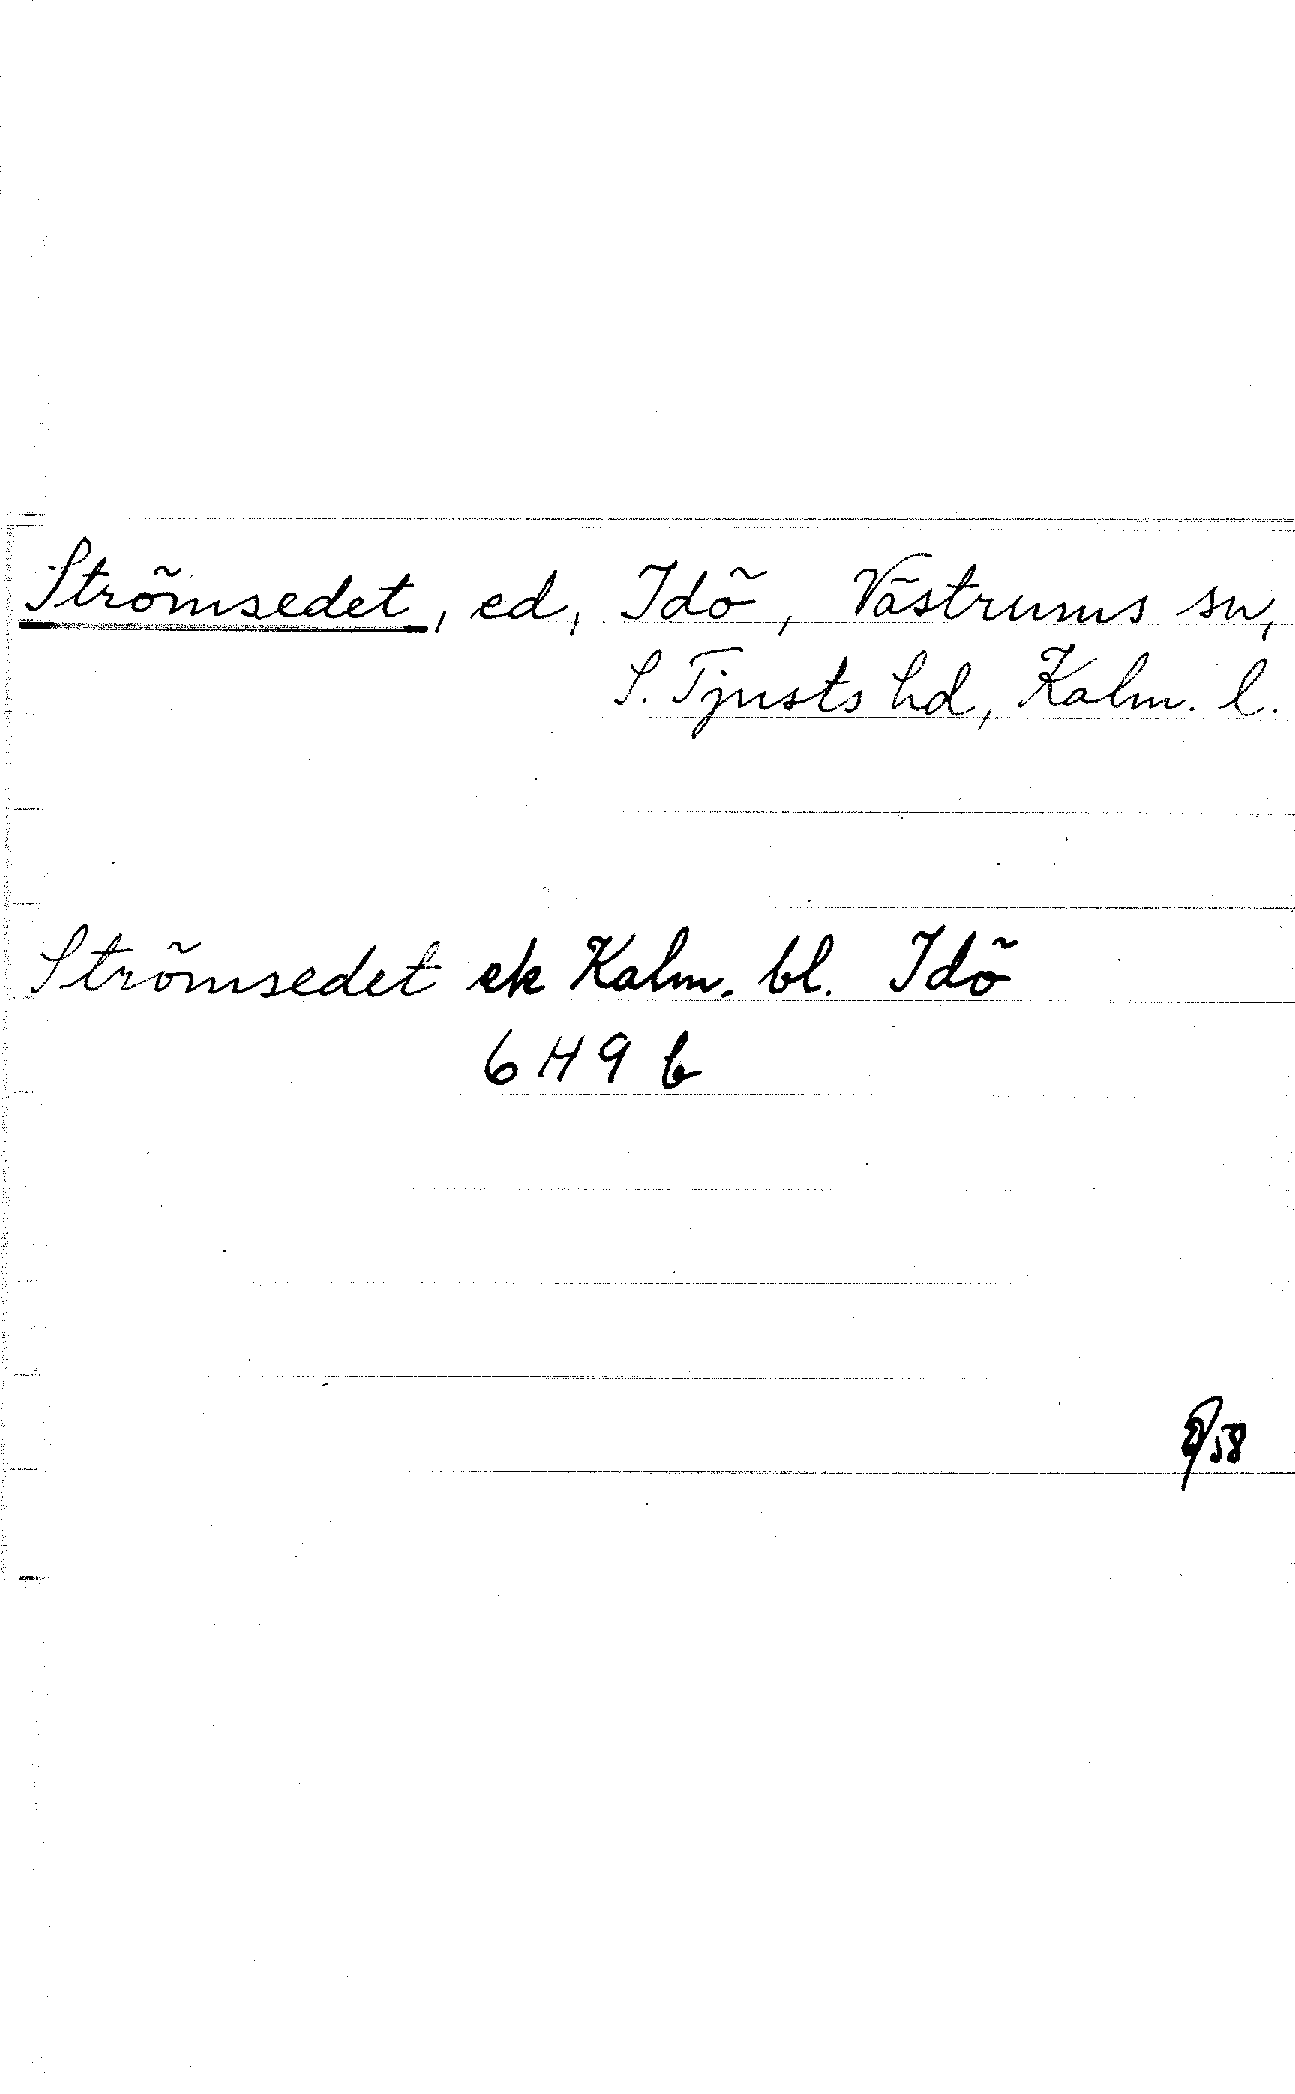 Strömsedet, ed, Idö, Västrums sn,
S. Tjusts hd, Kalm. l.
Strömsedet ek Kalm. bl. Idö
6 H 9 b
58